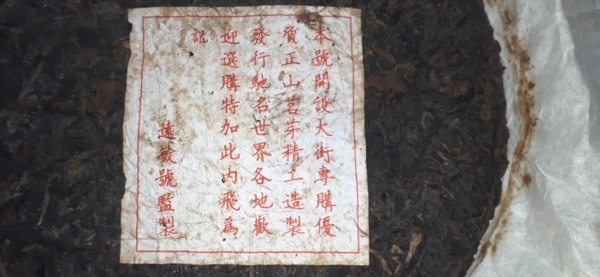 本號開設大街專購優
質正山茗芽精工造製
發行馳名世界各地歡
迎選購特加此內飛為
記
遠敬號監製